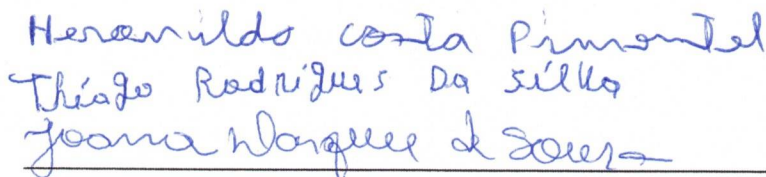 Heronildo costa Pimentel
Thiago Rodrigues Da silva
Joana Marques de Souza